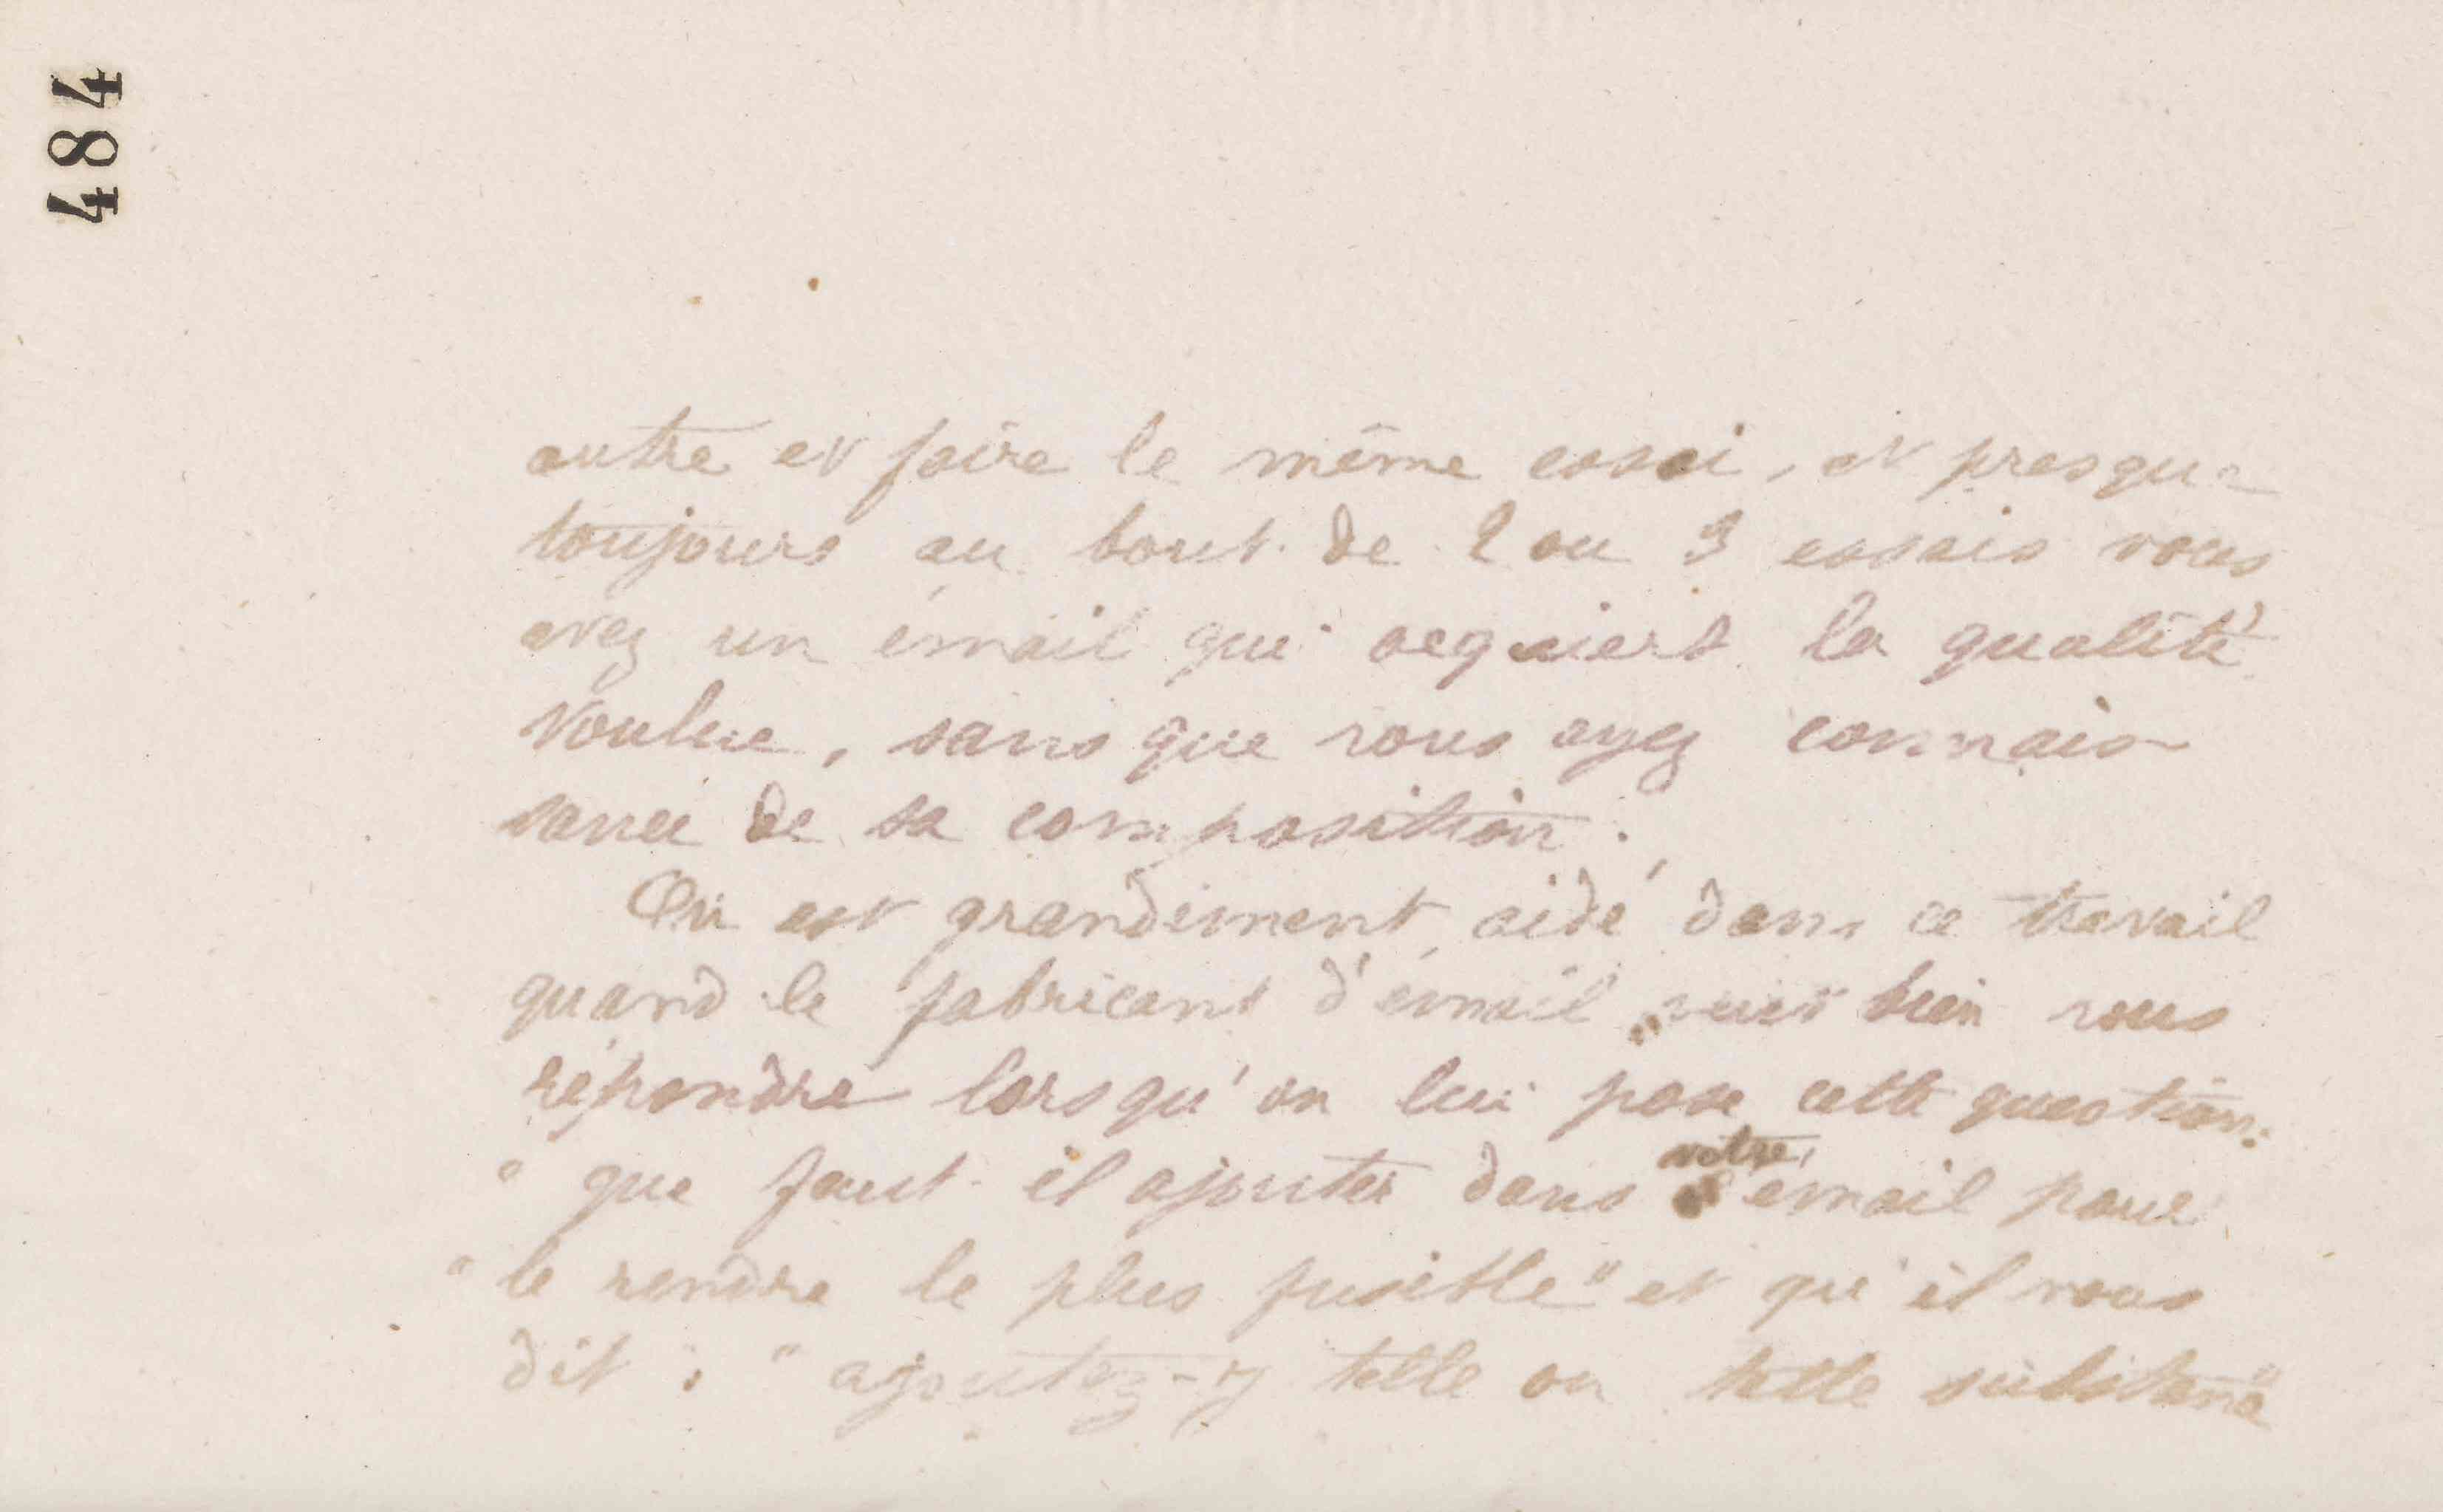 484
autre et faire le même essai, et presque
toujours au bout de 2 ou 3 essais vous
avez un émail qui acquiert la qualité
voulue, sans que vous ayez connais-
sance de sa composition.
On est grandement aidé dans ce travail
quand le fabricant d'émail veut bien vous
répondre lorsqu'on lui pose cette question:
" que faut-il ajouter dans votre émail pour
" le rendre le plus fusible" et qu'il vous
dit : " ajoutez-y telle ou telle substance"